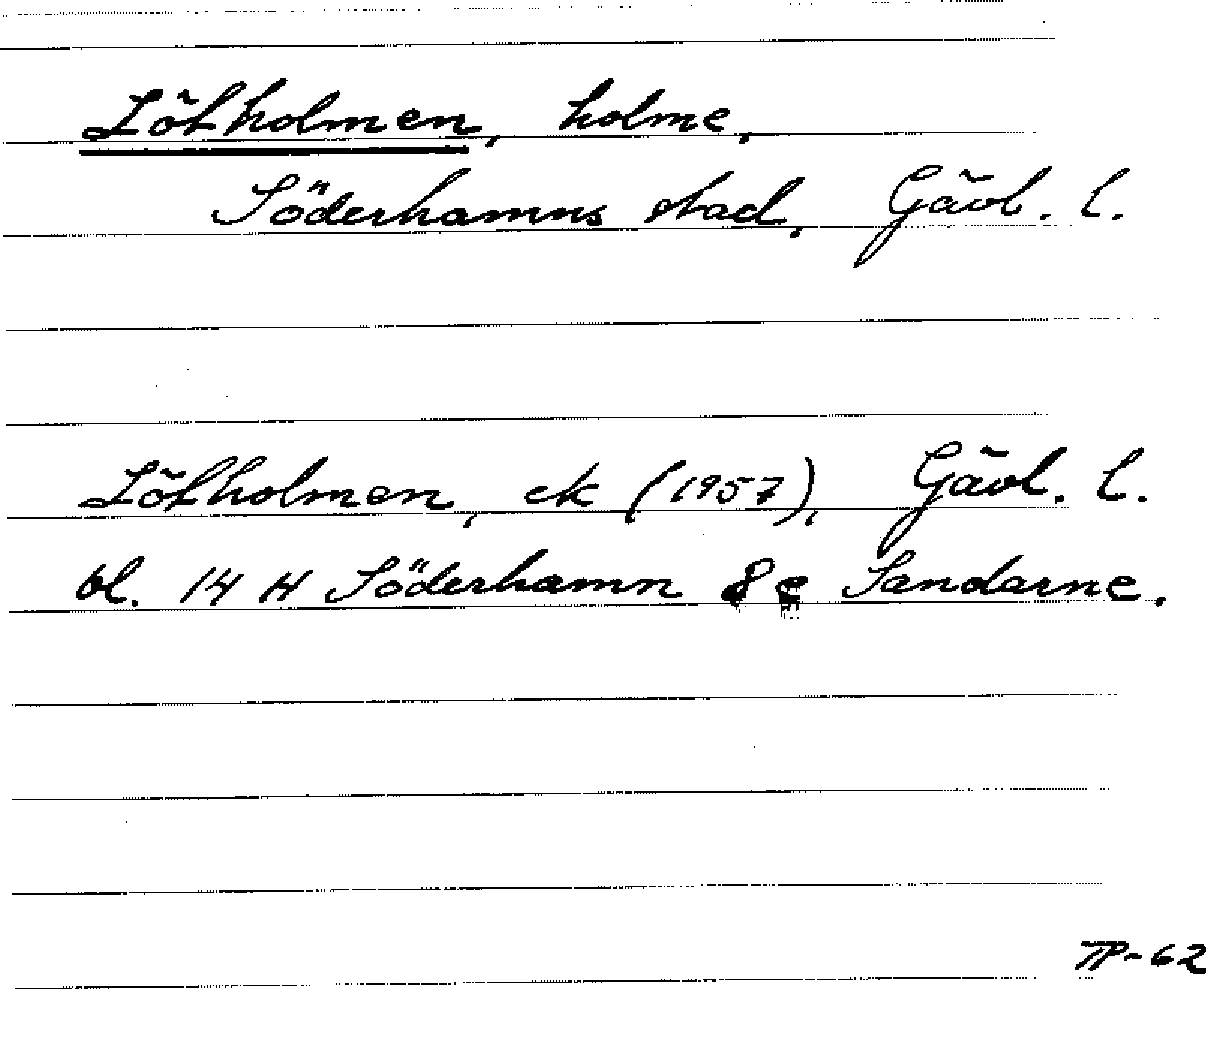 Lötholmen, holme,
Söderhamns stad, Gävl. l.
Lötholmen, ek (1957), Gävl. l.
bl. 14 H Söderhamn 8e Sandarne.
TP-62